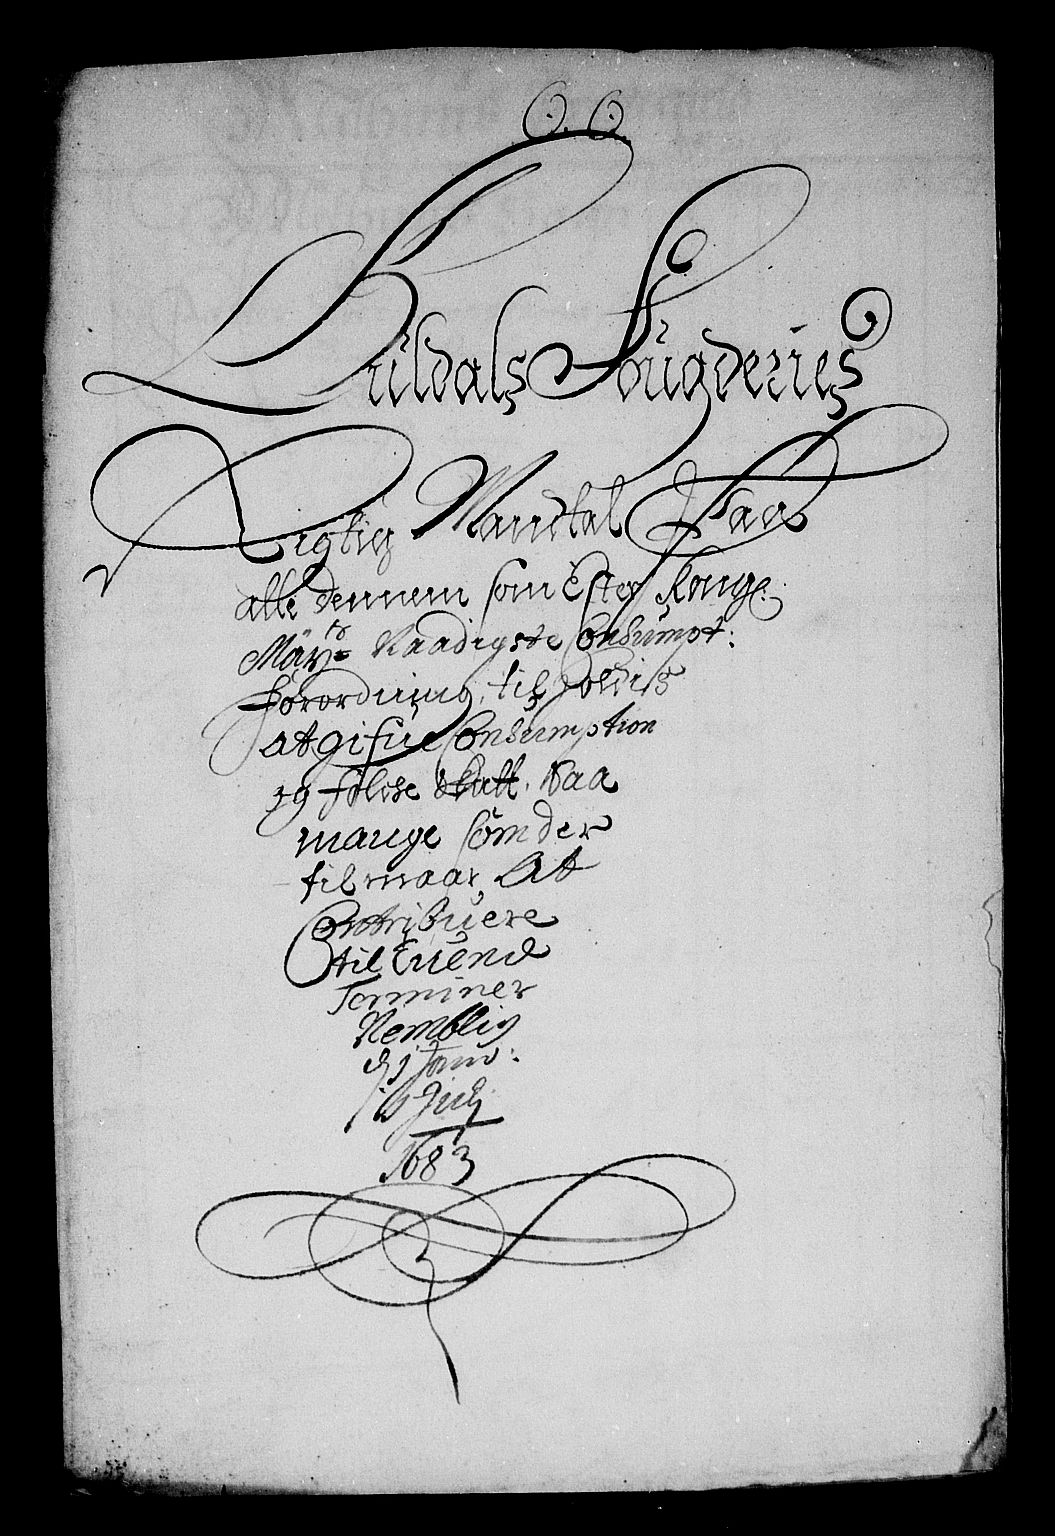 C. C.
Guldals Fougderies
Rigtig Mandtal Paa
alle dennem som Efter Kongl:
Mäyts Naadigste Consumpt:
forordning, til foldiss
at gifue Consumption
og folche skatt. Saa
mange som der
tilmaar, At
Contribuere
til tuende
Terminer
Nemblig
d 1 Janv:
1 Julij
1683